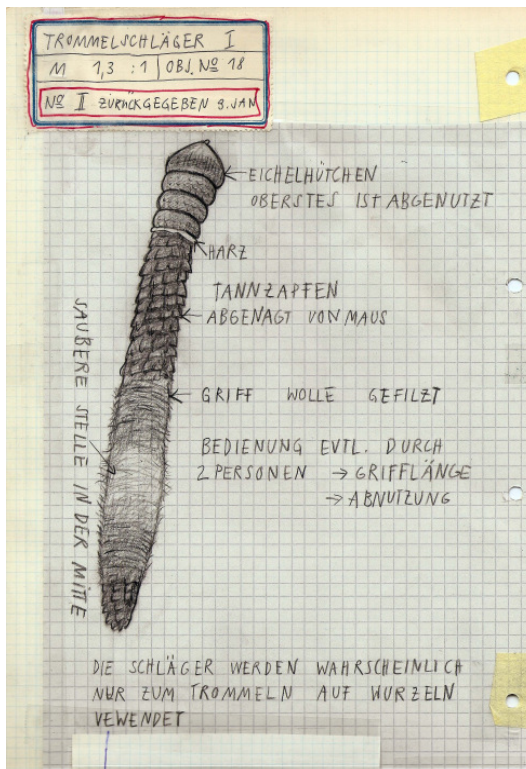 TROMMELSCHLÄGER I
M 1,3 : 1 | OBJ. № 18
№ II ZURÜCKGEGEBEN 9. JAN
EICHELHÜTCHEN
OBERSTES IST ABGENUTZT
HARZ
TANNZAPFEN
ABGENAGT VON MAUS
SAUBERE STELLE IN DER MITTE
GRIFF WOLLE GEFILZT
BEDIENUNG EVTL. DURCH
2 PERSONEN → GRIFFLÄNGE
→ ABNUTZUNG
DIE SCHLÄGER WERDEN WAHRSCHEINLICH
NUR ZUM TROMMELN AUF WURZELN
VEWENDET